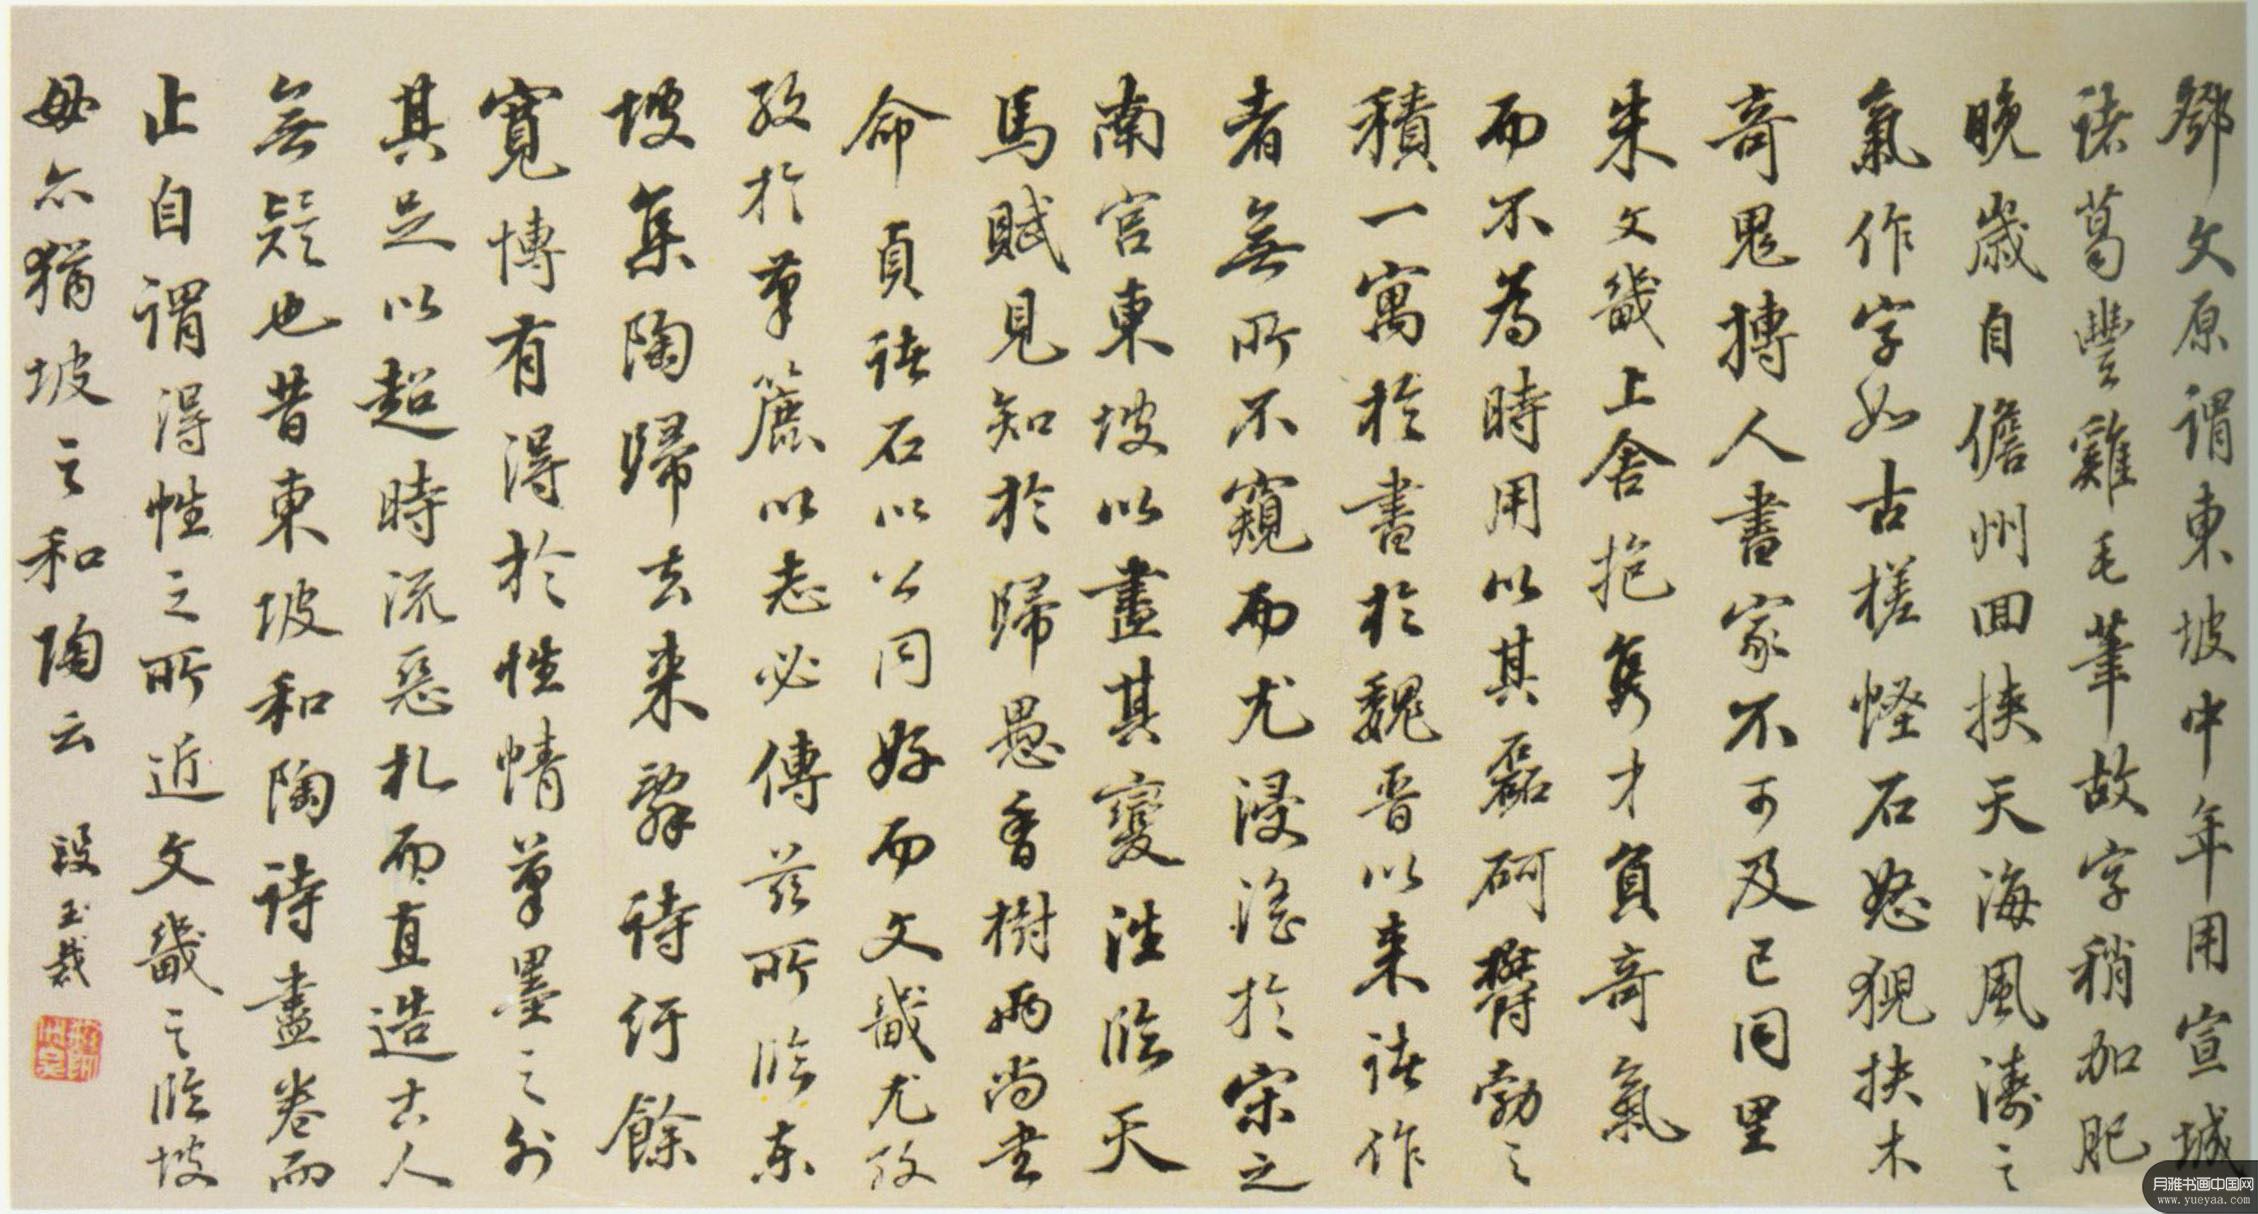 鄧文原謂東坡中年用宣城
諸葛豐雞毛筆故字稍加肥
晚歲自儋州回挾天海風濤之
氣作字如古槎怪石怒猊扶木
奇鬼搏人書家不可及已同里
朱文畿上舍抱雋才負奇氣
而不為時用以其磊砢鬱勃之
積一寓於書於魏晉以来諸作
者無所不窺而尤浸淫於宋之
南宫東坡以盡其變法臨天
馬賦見知於歸愚香樹兩尚書
命貢諸石以公同好而文畿尤孜
孜於筆簏以志必傳茲所臨東
坡集陶歸去来辭詩紆餘
寬博有得於性情筆墨之外
其足以超時流惡札而直造古人
無疑也昔東坡和陶詩盡卷而
止自謂得性之所近文畿之臨坡
毋亦猶坡之和陶云 段玉裁
月雅书画中国网
www.yueyaa.com